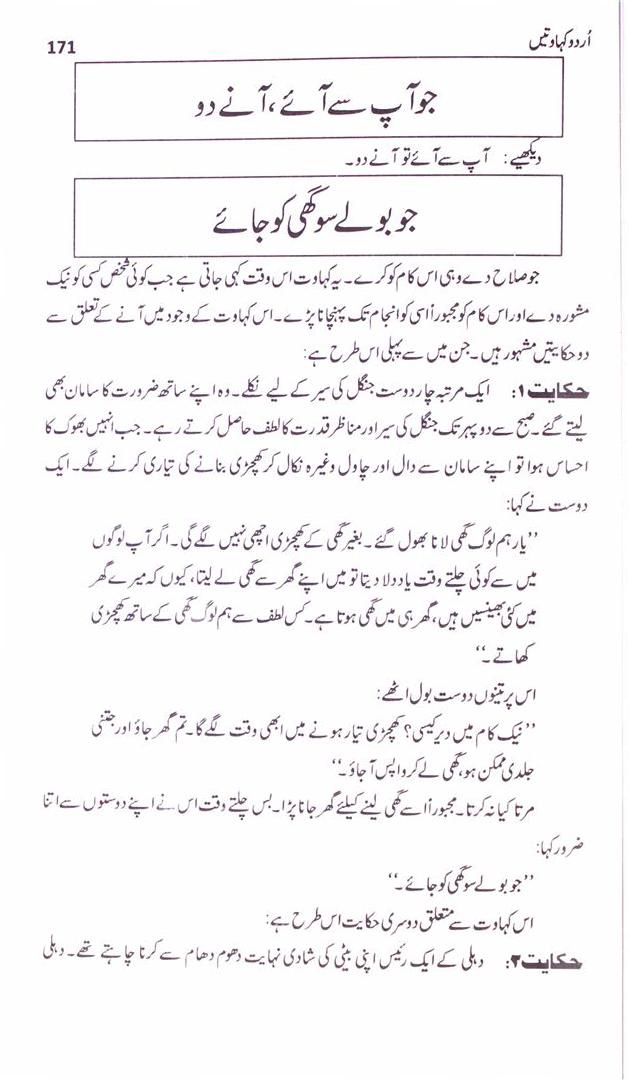 اُردو کہاوتیں
171
جو آپ سے آئے، آنے دو
دیکھیے: آپ سے آئے تو آنے دو۔
جو بولے سو گھی کو جائے
جو صلاح دے وہی اس کام کو کرے۔ یہ کہاوت اس وقت کہی جاتی ہے جب کوئی شخص کسی کو نیک
مشورہ دے اور اس کام کو مجبوراً اسی کو انجام تک پہنچانا پڑے۔ اس کہاوت کے وجود میں آنے کے تعلق سے
دو حکایتیں مشہور ہیں۔ جن میں سے پہلی اس طرح ہے:
حکایت ۱: ایک مرتبہ چار دوست جنگل کی سیر کے لیے نکلے۔ وہ اپنے ساتھ ضرورت کا سامان بھی
لیتے گئے۔ صبح سے دوپہر تک جنگل کی سیر اور مناظر قدرت کا لطف حاصل کرتے رہے۔ جب انہیں بھوک کا
احساس ہوا تو اپنے سامان سے دال اور چاول وغیرہ نکال کر کھچڑی بنانے کی تیاری کرنے لگے۔ ایک
دوست نے کہا:
’’یار ہم لوگ گھی لانا بھول گئے۔ بغیر گھی کے کھچڑی اچھی نہیں لگے گی۔ اگر آپ لوگوں
میں سے کوئی چلتے وقت یاد دلا دیتا تو میں اپنے گھر سے گھی لے لیتا، کیوں کہ میرے گھر
میں کئی بھینسیں ہیں، گھر ہی میں گھی ہوتا ہے۔ کس لطف سے ہم لوگ گھی کے ساتھ کھچڑی
کھاتے۔‘‘
اس پر تینوں دوست بول اٹھے:
’’نیک کام میں دیر کیسی؟ کھچڑی تیار ہونے میں ابھی وقت لگے گا۔ تم گھر جاؤ اور جتنی
جلدی ممکن ہو، گھی لے کر واپس آ جاؤ۔‘‘
مرتا کیا نہ کرتا۔ مجبوراً اسے گھی لینے کیلئے گھر جانا پڑا۔ بس چلتے وقت اس نے اپنے دوستوں سے اتنا
ضرور کہا:
’’جو بولے سو گھی کو جائے۔‘‘
اس کہاوت سے متعلق دوسری حکایت اس طرح ہے:
حکایت ۲: دہلی کے ایک رئیس اپنی بیٹی کی شادی نہایت دھوم دھام سے کرنا چاہتے تھے۔ دہلی